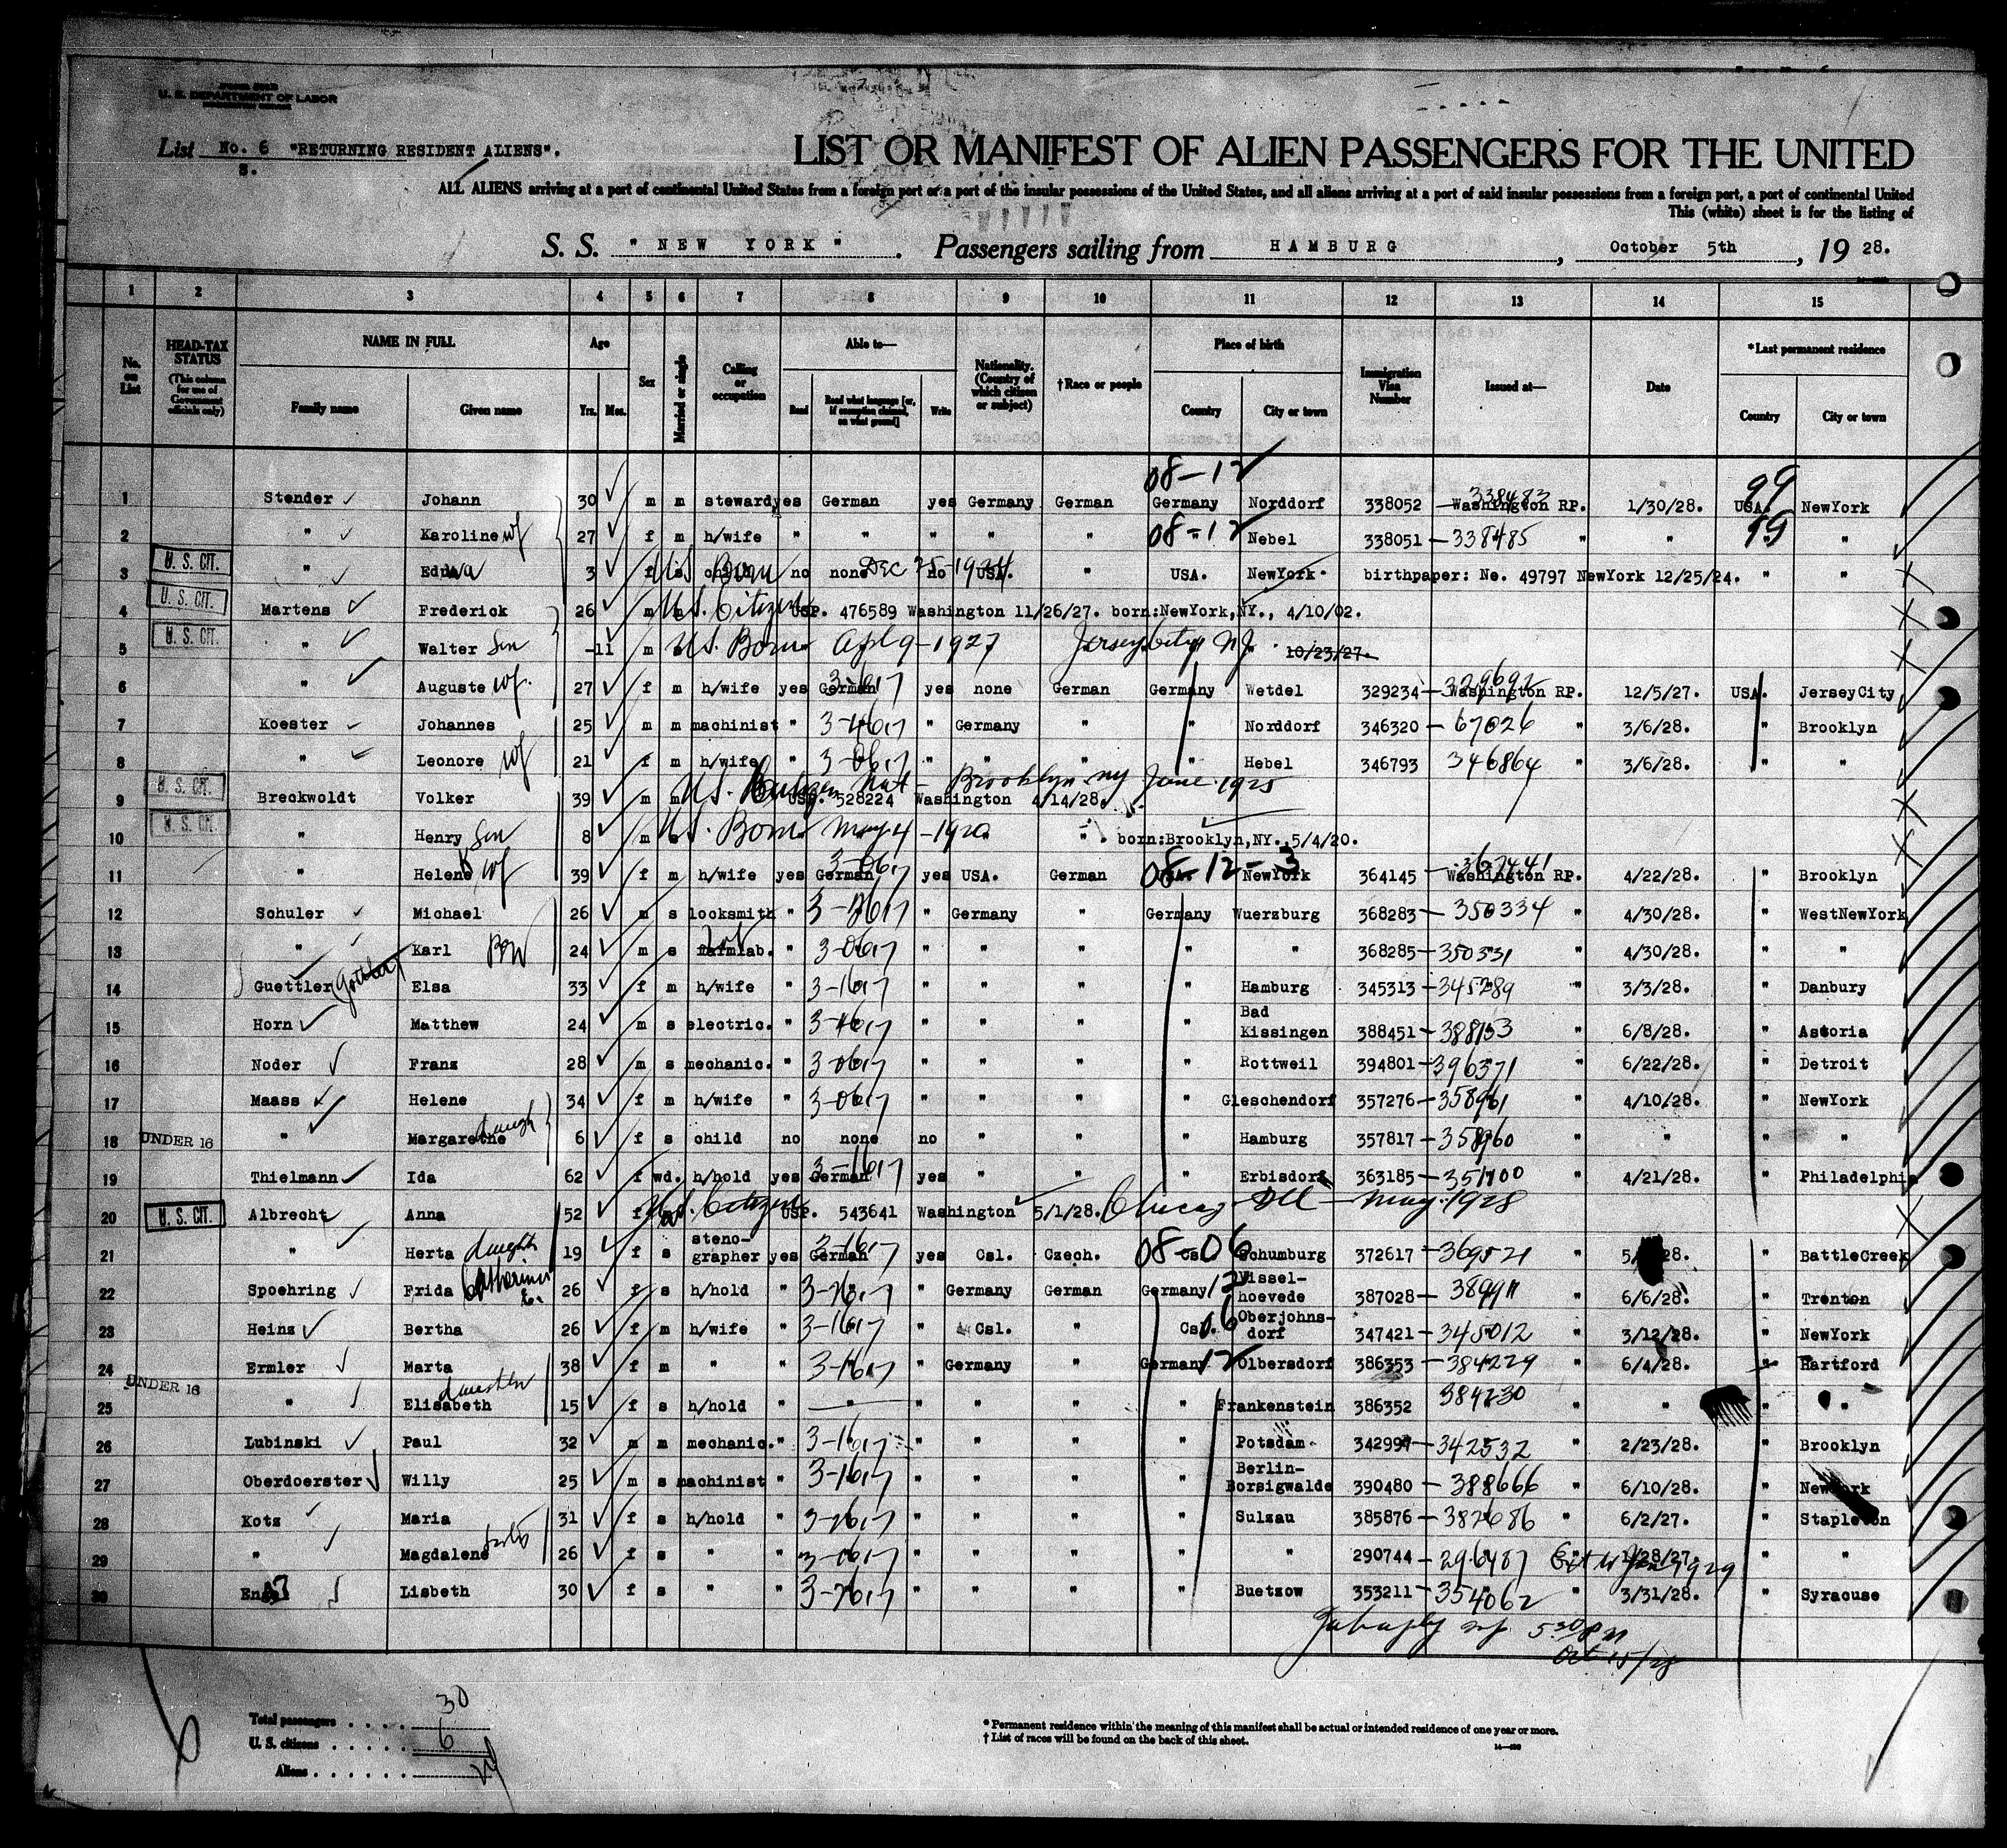 U. S. DEPARTMENT OF LABOR
List No. 6 "RETURNING RESIDENT ALIENS".
S.
LIST OR MANIFEST OF ALIEN PASSENGERS FOR THE UNITED
ALL ALIENS arriving at a port of continental United States from a foreign port or a port of the insular possessions of the United States, and all aliens arriving at a port of said insular possessions from a foreign port, a port of continental United
This (white) sheet is for the listing of
S. S. " NEW YORK ". Passengers sailing from HAMBURG, October 5th, 19 28.
1 2 3 4 5 6 7 8 9 10 11 12 13 14 15
No. on List
HEAD-TAX STATUS (This column for use of Government officials only)
NAME IN FULL Family name Given name
Age Yrs. Mos.
Sex
Married or single
Calling or occupation
Able to— Read Read what language [or, if exemption claimed, on what ground] Write
Nationality. (Country of which citizen or subject)
†Race or people
Place of birth Country City or town
Immigration Visa Number
Issued at—
Date
*Last permanent residence Country City or town
08-12
1 Stender Johann 30 m m steward yes German yes Germany German Germany Norddorf 338052 338483 Washington RP. 1/30/28. USA. NewYork
2 " Karoline wf 27 f m h/wife " " " " " 08-12 Nebel 338051-338485 " " " "
3 U. S. CIT. " Edna 3 f s child US Born no none Dec 25-1924 no USA. " USA. NewYork birthpaper: No. 49797 NewYork 12/25/24. " "
4 U. S. CIT. Martens Frederick 26 m m U.S. Citizen USP. 476589 Washington 11/26/27. born:NewYork,NY., 4/10/02.
5 U. S. CIT. " Walter Son -11 m s U.S. Born Apl 9-1927 Jersey City NJ. 10/23/27.
6 " Auguste wf. 27 f m h/wife yes German 3-0617 yes none German Germany Wetdel 329234-329692 Washington RP. 12/5/27. USA. JerseyCity
7 Koester Johannes 25 m m machinist " 3-4617 " Germany " " Norddorf 346320-67026 " 3/6/28. " Brooklyn
8 " Leonore wf 21 f m h/wife " 3-0617 " " " " Hebel 346793 346864 " 3/6/28. " "
9 U. S. CIT. Breckwoldt Volker 39 m m U.S. Citizen Nat- Brooklyn NY June 1925 USP. 528224 Washington 4/14/28.
10 U. S. CIT. " Henry Son 8 m s U.S. Born May 4-1920 " " born:Brooklyn,NY.,5/4/20.
11 " Helene wf 39 f m h/wife yes German 3-0617 yes USA. German 08-12-3 NewYork 364145-367441 Washington RP. 4/22/28. " Brooklyn
12 Schuler Michael 26 m s locksmith " 3-1617 " Germany " Germany Wuerzburg 368283-350334 " 4/30/28. " WestNewYork
13 " Karl Bro 24 m s farmlab. " 3-0617 " " " " " 368285-350331 " 4/30/28. " "
14 Guettler Elsa 33 f m h/wife " 3-1617 " " " " Hamburg 345313-345289 " 3/3/28. " Danbury
15 Horn Matthew 24 m s electric. " 3-4617 " " " " Bad Kissingen 388451-388153 " 6/8/28. " Astoria
16 Noder Franz 28 m s mechanic. " 3-0617 " " " " Rottweil 394801-396371 " 6/22/28. " Detroit
17 Maass Helene 34 f m h/wife " 3-0617 " " " " Gleschendorf 357276-358961 " 4/10/28. " NewYork
18 UNDER 16 " Margarethe daugh 6 f s child no none no " " " Hamburg 357817-358960 " " " "
19 Thielmann Ida 62 f wd. h/hold yes German 3-1617 yes " " " Erbisdorf 363185-351700 " 4/21/28. " Philadelphia
20 U. S. CIT. Albrecht Anna 52 f wd. U.S. Citizen USP. 543641 Washington 5/1/28. Chicago Ill - May 1928
21 " Herta daught 19 f s steno-grapher yes German 3-1617 yes Csl. Czech. 08-06 Schumburg 372617-369521 " 28. " BattleCreek
22 Spoehring Frida Catherine E. 26 f s h/hold " 3-7617 " Germany German Germany 12 Vissel-hoevede 387028-389911 " 6/6/28. " Trenton
23 Heinz Bertha 26 f m h/wife " 3-1617 " Csl. " Csl. 06 Oberjohns-dorf 347421-345012 " 3/12/28. " NewYork
24 Ermler Marta 38 f m " " 3-1617 " Germany " Germany 12 Olbersdorf 386353-384229 " 6/4/28. " Hartford
25 UNDER 16 " Elisabeth daughter 15 f s h/hold " " " " " Frankenstein 386352 384230 " " " "
26 Lubinski Paul 32 m m mechanic. " 3-1617 " " " " Potsdam 342997-342532 " 2/23/28. " Brooklyn
27 Oberdoerster Willy 25 m s machinist " 3-1617 " " " " Berlin-Borsigwalde 390480-388666 " 6/10/28. " NewYork
28 Kotz Maria 31 f s h/hold " 3-7617 " " " " Sulzau 385876-382686 " 6/2/27. " Stapleton
29 " Magdalene sister 26 f s " " 3-0617 " " " " " 290744-296487 Ext to Jan 1929 1/28/27. " "
30 Engel Lisbeth 30 f s " " 3-7617 " " " " Buetzow 353211-354062 " 3/31/28. " Syracuse
5 30 PM
Oct 15/28
Total passengers . . . . 30
U. S. citizens . . . . . 6
Aliens . . . . . . 24
* Permanent residence within the meaning of this manifest shall be actual or intended residence of one year or more.
† List of races will be found on the back of this sheet.